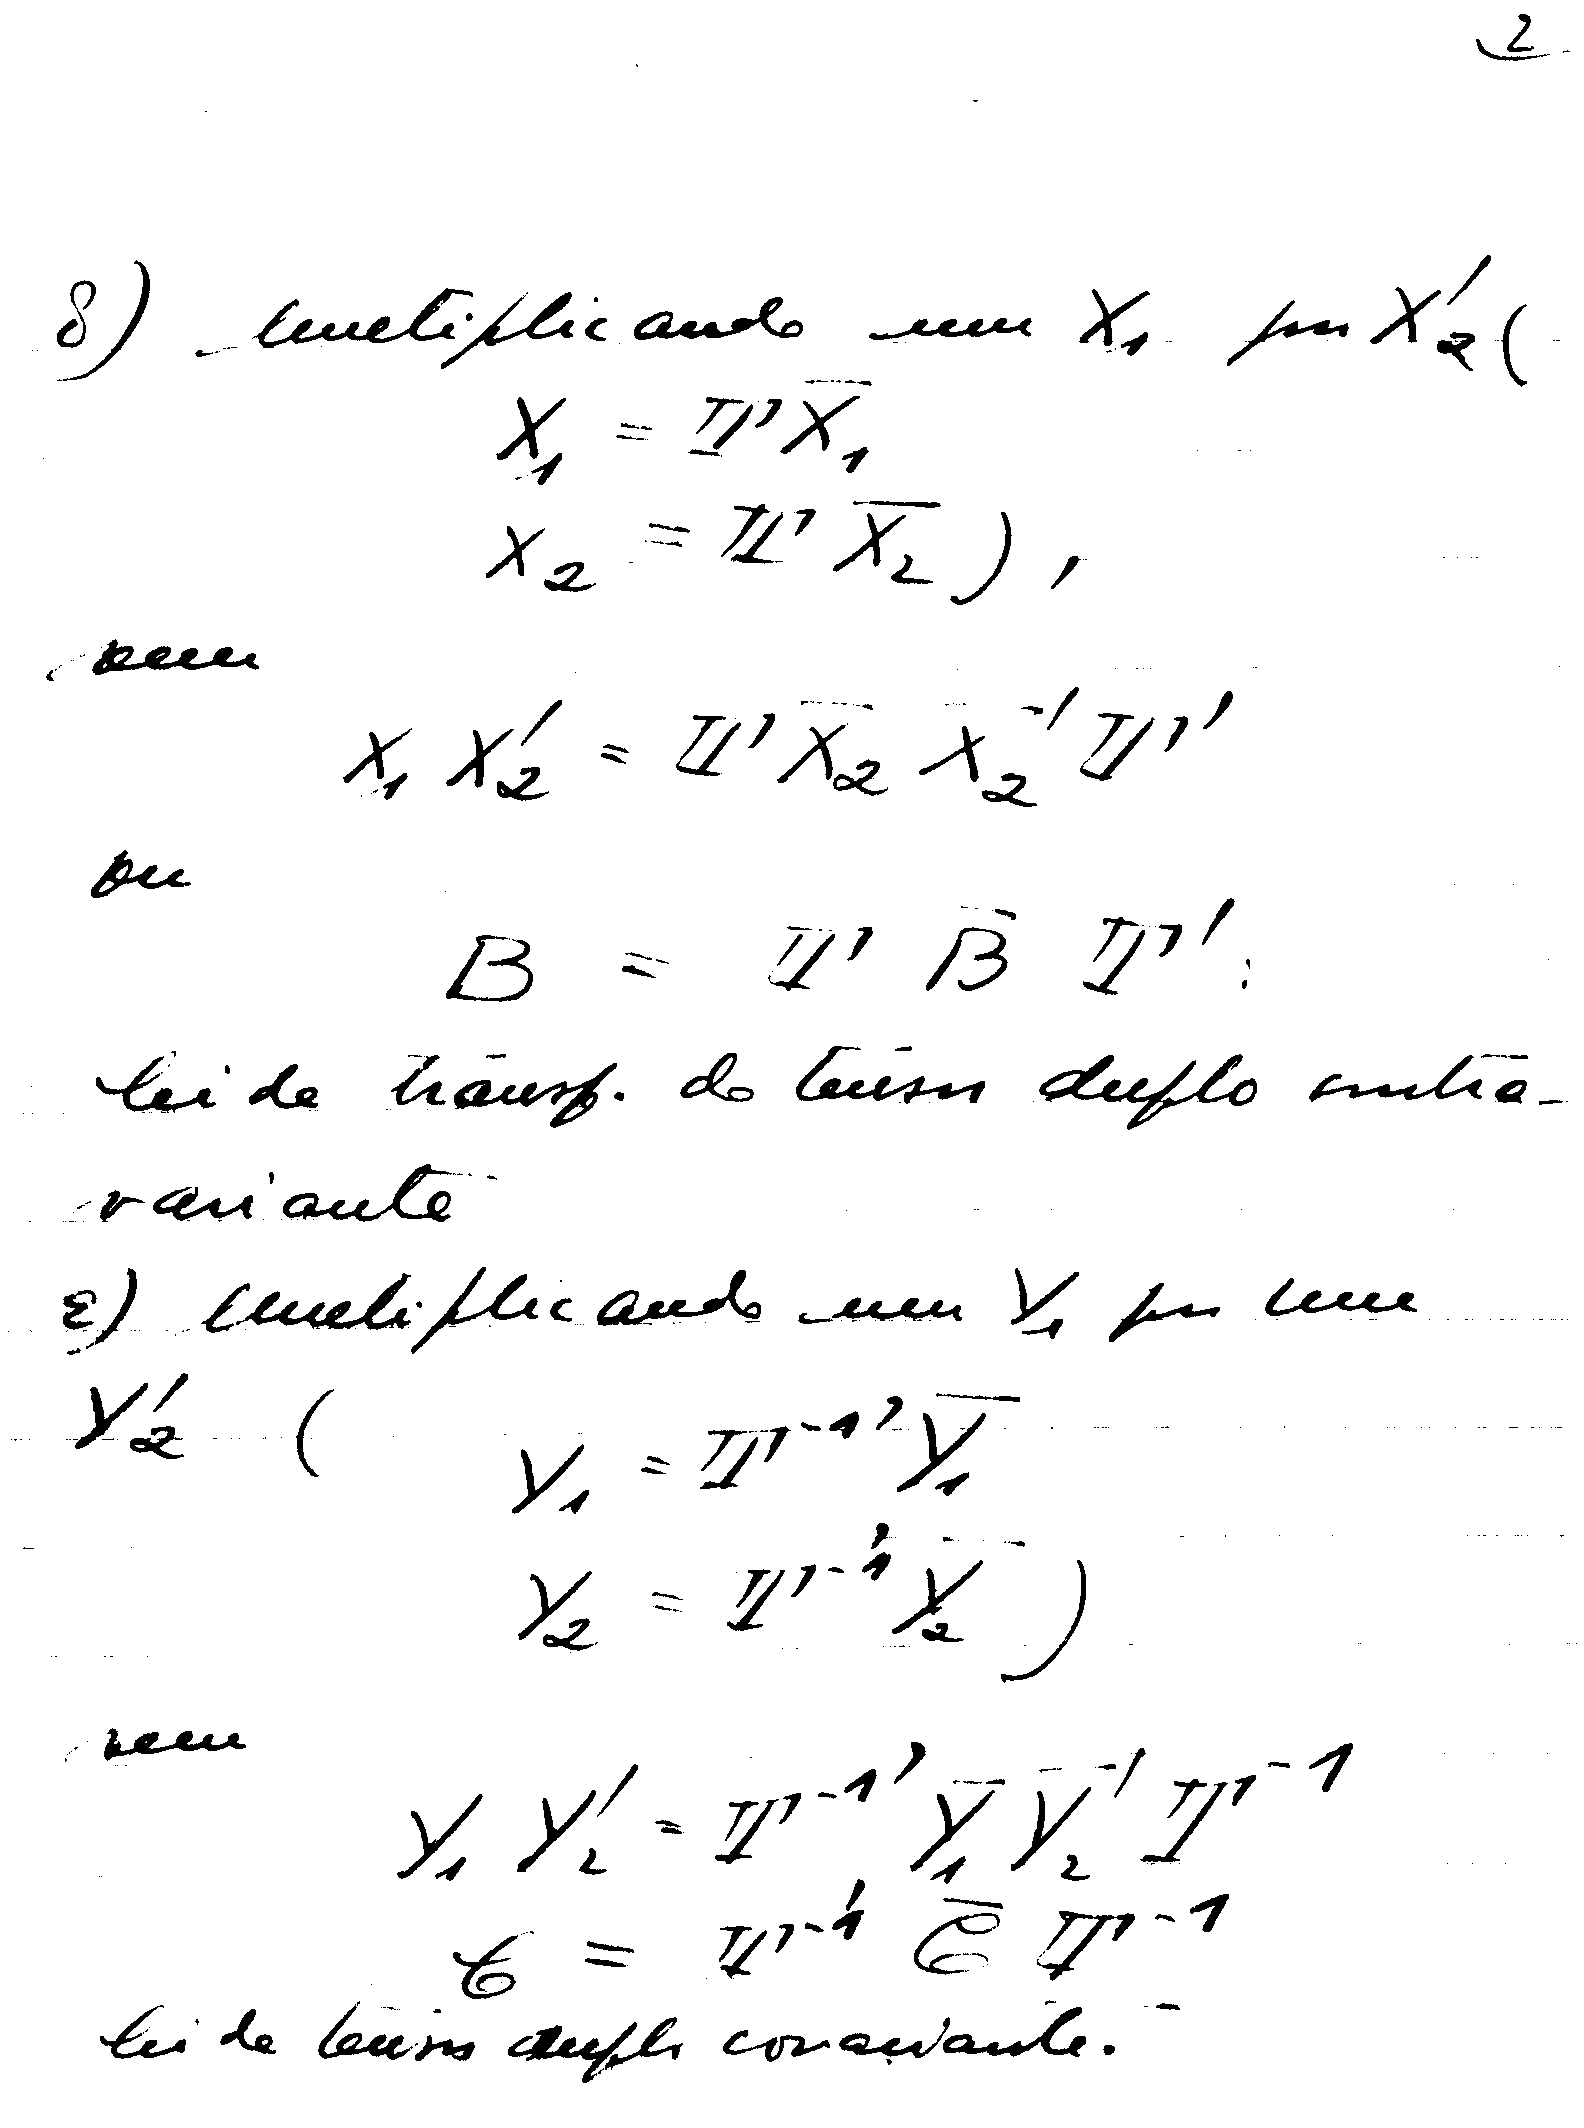 2
δ) multiplicando um X₁ por X₂′ (
X₁ = 𝕋 X̄₁
X₂ = 𝕋 X̄₂ ) ,
vem
X₁ X₂′ = 𝕋 X̄₂ X̄₂′ 𝕋′
ou
B = 𝕋 B̄ 𝕋′ :
lei de transf. do tensor duplo contra-
variante
ε) multiplicando um Y₁ por um
Y₂′ ( Y₁ = 𝕋⁻¹′ Ȳ₁
Y₂ = 𝕋⁻¹′ Ȳ₂ )
vem
Y₁ Y₂′ = 𝕋⁻¹′ Ȳ₁ Ȳ₂′ 𝕋⁻¹
C = 𝕋⁻¹′ C̄ 𝕋⁻¹
lei do tensor duplo covariante.